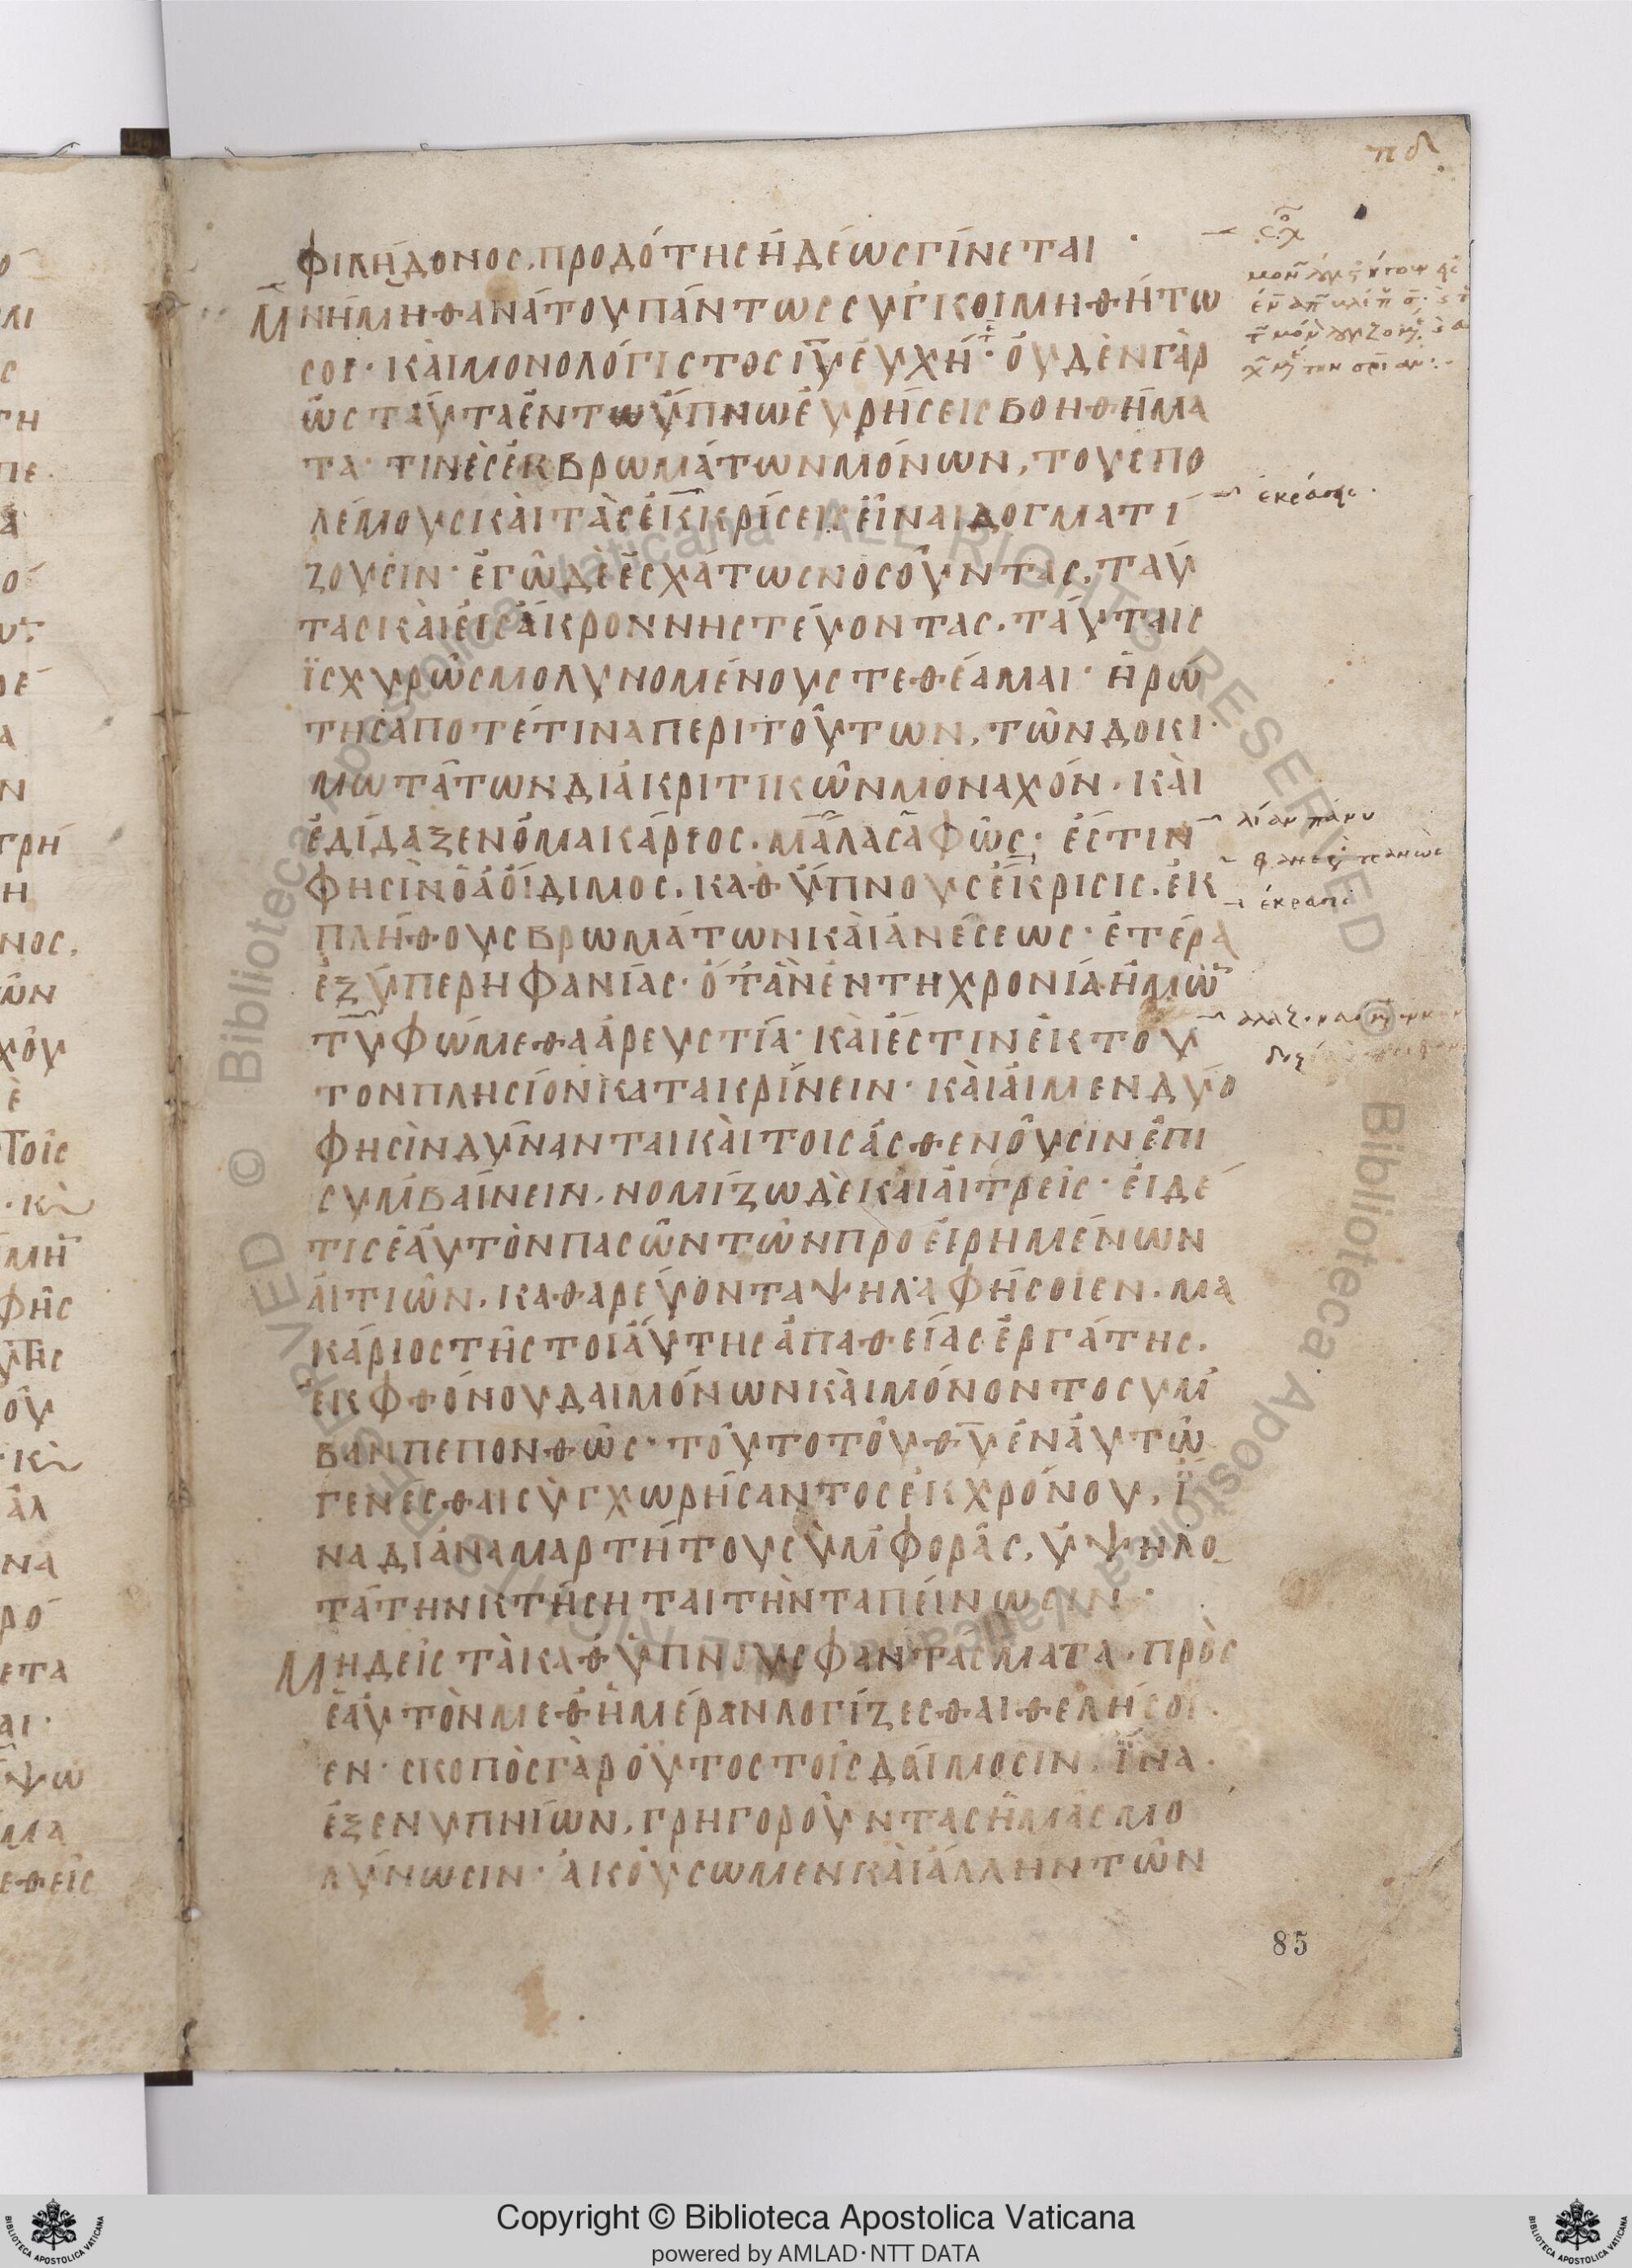 πδ
φιλήδονος, προδότης ἡδέως γίνεται ·
Μνήμη θανάτου πάντως συγκοιμηθήτω
σοι · καὶ μονολόγιστος ἰῦ εὐχή · οὐδὲν γὰρ
ὡς ταῦτα ἐν τω ὕπνω εὑρήσεις βοηθήμα
τα · τινὲς ἐκ βρωμάτων μόνων, τους πο
λέμους καὶ τὰς ἐκκρίσεις εἶναι δογματί
ζουσιν · ἐγὼ δὲ ἐσχάτως νοσοῦντας, ταύ
τας καὶ εἰς ἄκρον νηστεύοντας, ταύταις
ϊσχυρῶς μολυνομένους τεθέαμαι · ἠρώ
τησά ποτέ τινα περι τούτων, τῶν δοκι
μωτάτων διακριτικῶν μοναχόν · καὶ
ἐδίδαξεν ὁ μακάριος, μάλα σαφῶς · ἔστιν
φησὶν ὁ ἀοίδιμος, καθ ὕπνους ἔκρισις, ἐκ
πλήθους βρωμάτων καὶ ἀνέσεως · ἑτέρα
ἐξ ὑπερηφανίας · ὅτ ἂν ἐν τη χρονία ἡμῶ
τυφώμεθα ἀρευστία · καὶ ἔστιν ἐκ του
τον πλησίον κατακρίνειν · καὶ αἱ μεν δύο
φησὶν δύνανται καὶ τοις ἀσθενοῦσιν ἐπι
συμβαίνειν, νομίζω δὲ καὶ αἱ τρεῖς · εἰ δέ
τις ἑαυτὸν πασῶν τῶν προειρημένων
αἰτιῶν, καθαρεύοντα ψηλαφήσοιεν, μα
κάριος τῆς τοιαύτης ἀπαθείας ἐργάτης,
ἐκ φθόνου δαιμόνων καὶ μόνον το συμ
βαν πεπονθῶς · τοῦτο τοῦ θῦ ἐν αὐτῶ
γενέσθαι συγχωρήσαντος ἐκ χρόνου, ϊ
να δι ἀναμαρτήτου συμφορᾶς, ὑψηλο
τάτην κτήσηται τὴν ταπείνωσιν ·
Μηδεὶς τὰ καθ ὕπνους φαντάσματα, πρὸς
ἑαυτὸν μεθ ἡμέραν λογίζεσθαι θελήσοι
εν · σκοπὸς γὰρ οὗτος τοῖς δαίμοσιν, ϊνα
ἐξ ενυπνίων, γρηγοροῦντας ἡμᾶς μο
λύνωσιν · ἀκούσωμεν καὶ ἄλλην τῶν
λίαν πάνυ
85
Copyright © Biblioteca Apostolica Vaticana
powered by AMLAD·NTT DATA